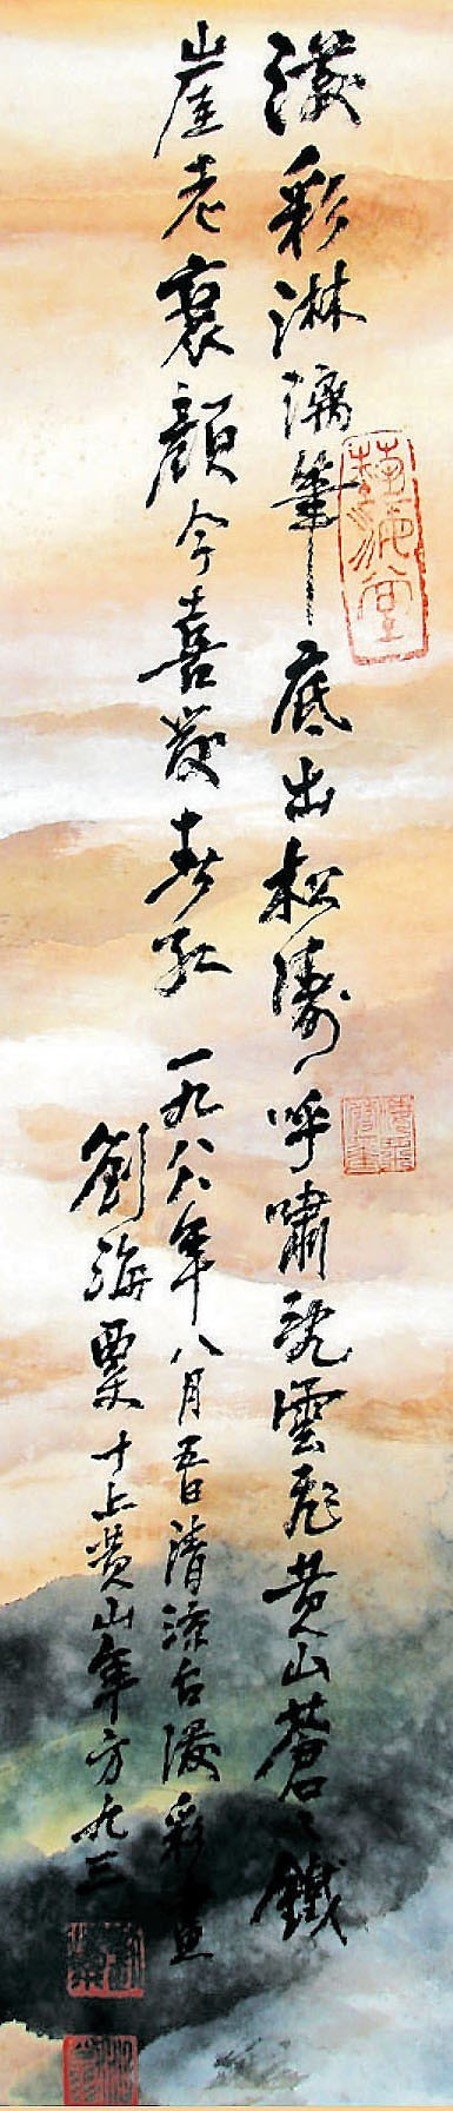 潑彩淋漓筆底出松濤呼嘯亂雲飛黄山蒼々鐵
崖老衰顏今喜發春紅
一九八八年八月五日清凉台潑彩畫
劉海粟十上黄山年方九三
藝海堂